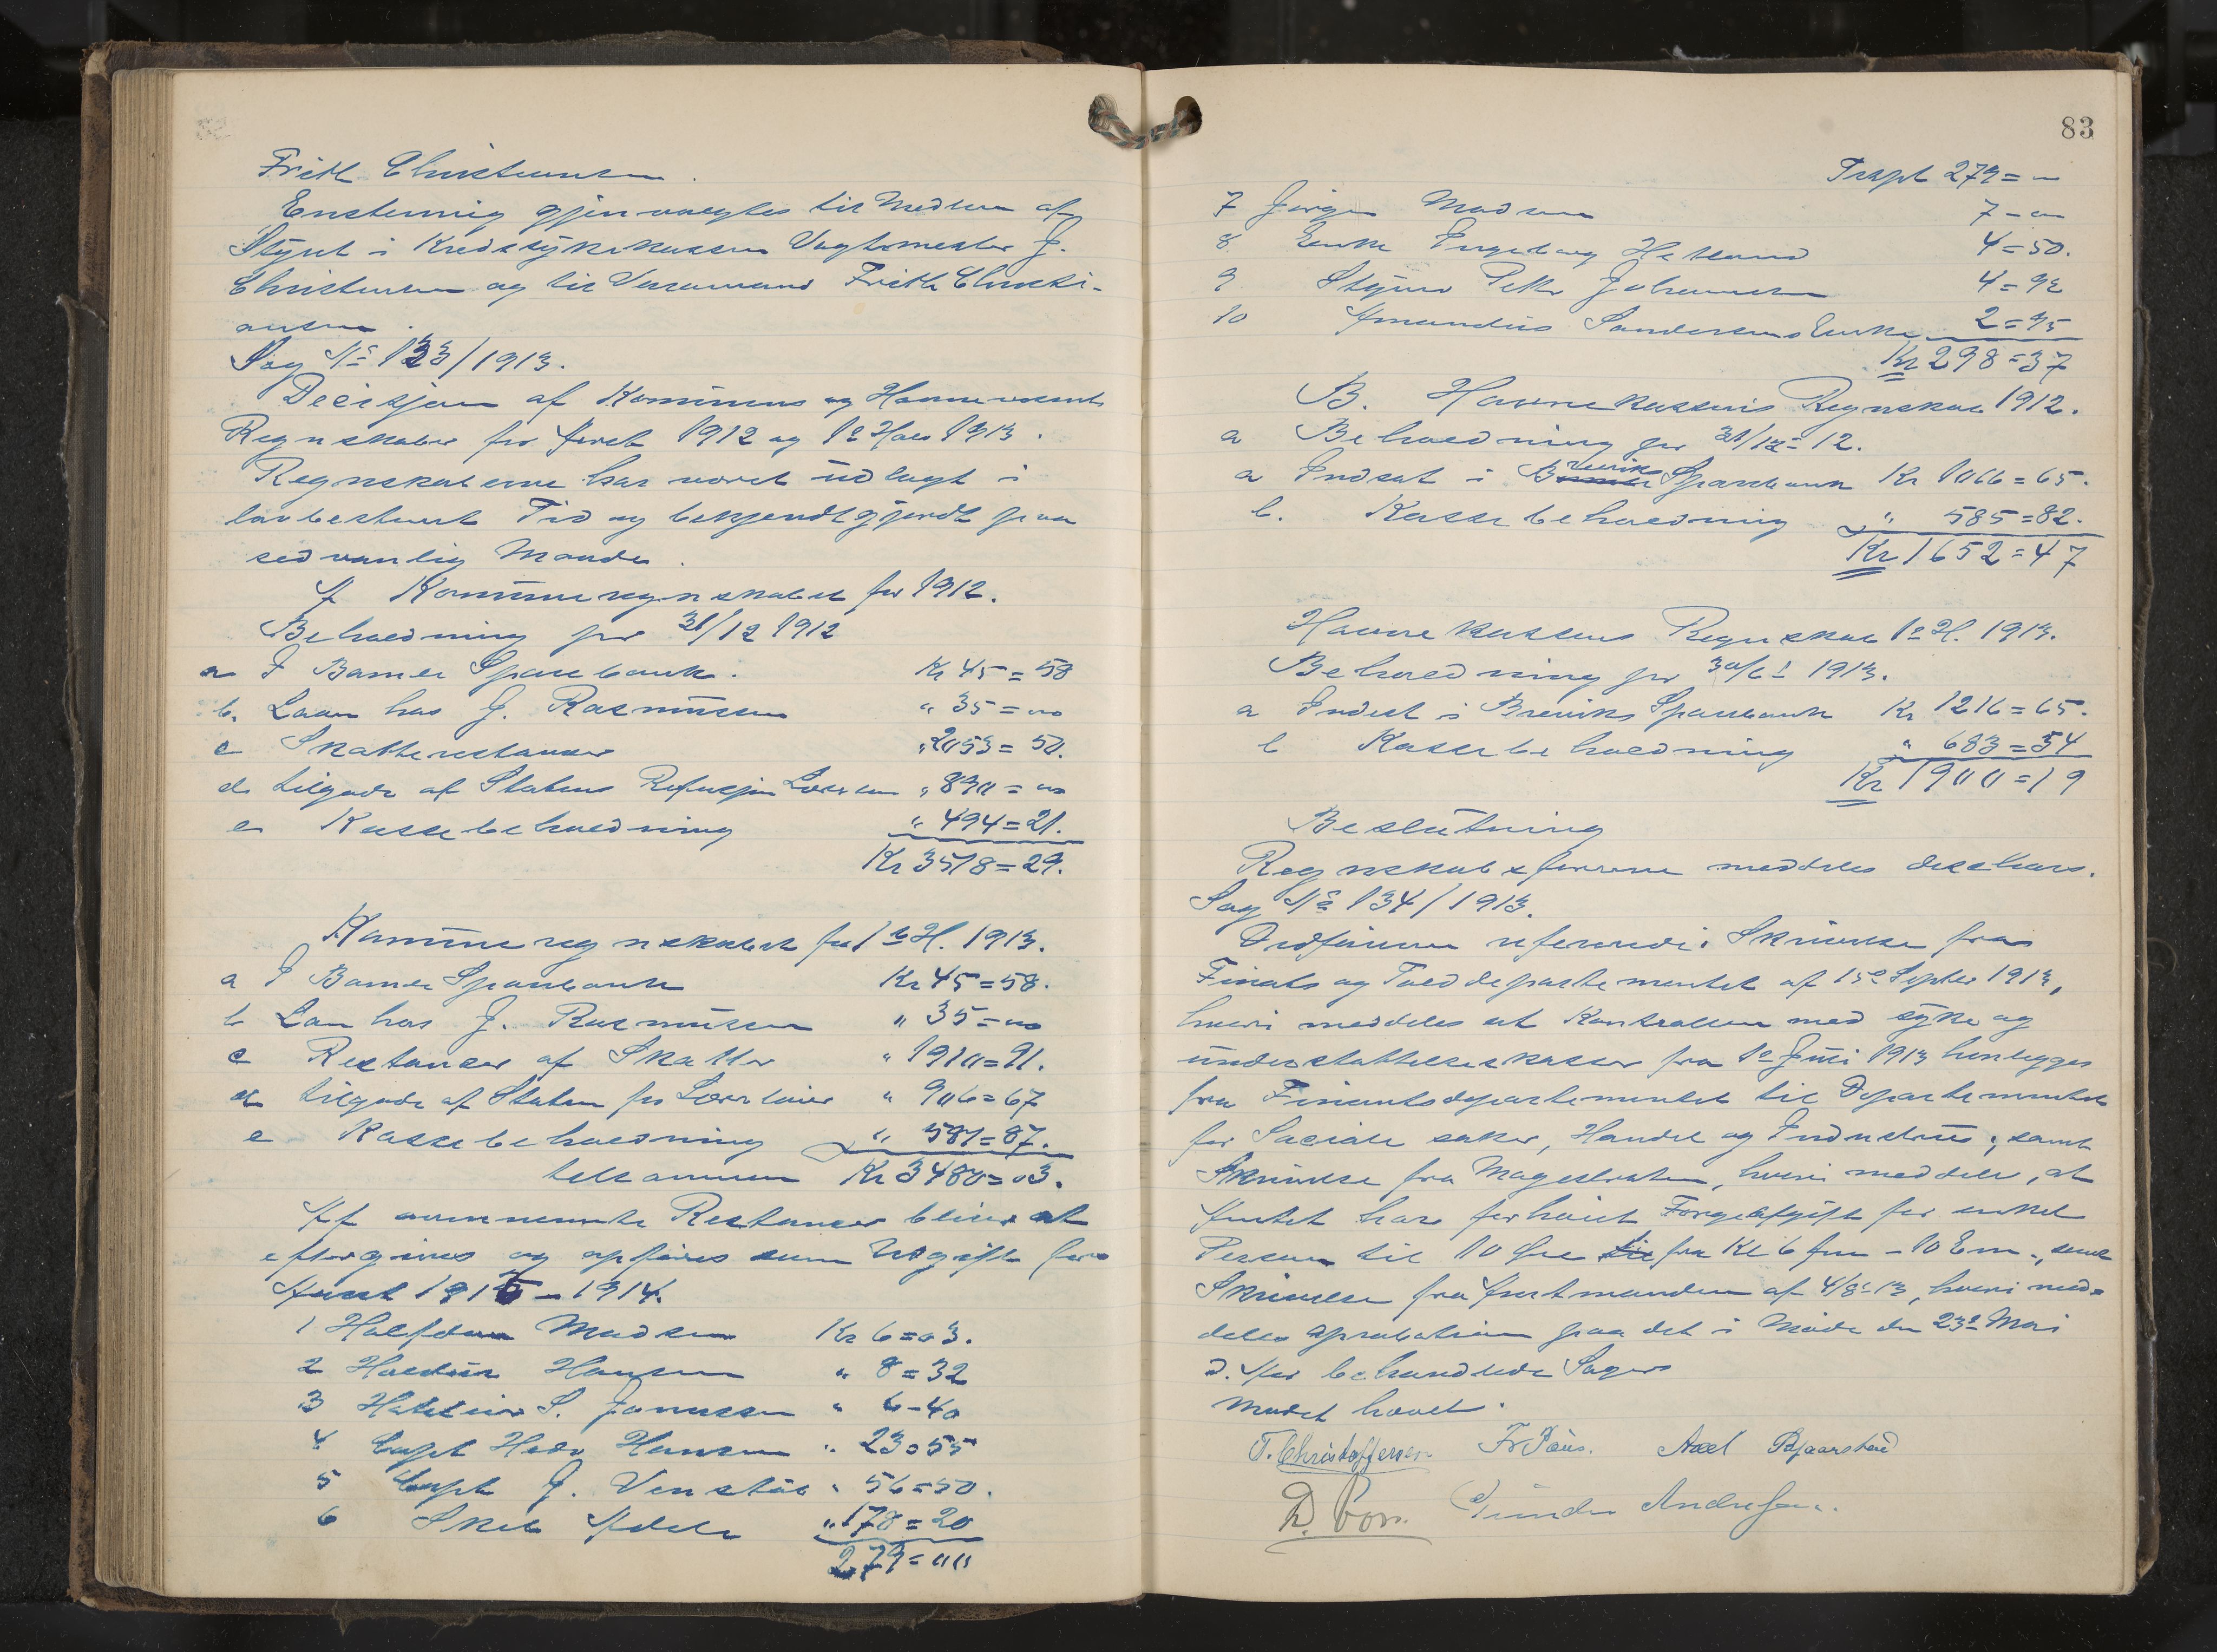 Fritk Christiansen.
Enstemmig gjenvælgtes til Medlem af
Styret i Kredssykekassen Vagtmester J.
Christensen og til Varamand Fritk Christi-
ansen.
Sag No 133/1913.
Decisjon af Kommune og Havnevæsenets
Regnskaber for Aaret 1912 og 1e Halv 1913.
Regnskaberne har været udlagt i
lovbestemt Tid og bekjendtgjordt paa
sedvanlig Maade.
A Kommuneregnskabet for 1912.
Beholdning pr 31/12 1912
a I Bamle Sparebank. Kr 45=58
b. Laan hos J. Rasmussen " 35=00
c Skatterestancer " 2053=50.
d. tilgode af Statens Refusjon Lærerløn " 890=00
e Kassebeholdning " 494=21.
Kr 3518=29.
Kommuneregnskabet for 1ste H. 1913.
a I Bamle Sparebank Kr 45=58.
b Laan hos J. Rasmussen " 35=00
c Restancer af Skatter " 1910=91.
d tilgode af Staten for Lærerløn " 906=67
e Kassebeholdning " 581=87.
tilsammen Kr 3480=03.
Af ovennevnte Restancer bliver at
eftergives og opføres som Utgift for
Aaret 1913-1914.
1 Halfdan Madsen Kr 6=03.
2 Hansen " 8=32
3 S. Jonassen " 6-40
4 Capt Hansen " 23=55
5 Capt J. Venstøb " 56=50.
6 Skib Adele " 178=20
279=00
83
Trspt 279=00
7 Jørgen Madsen 7-00
8 Enke Ingeborg Hetland 4=50.
9 Styrm Petter Johannesen 4=92
10 Amandus Sandersens Enke 2=95
Kr 298=37
B. Havnekassens Regnskab 1912.
a Beholdning pr 31/12-12.
a Indsat i Brevik Sparebank Kr 1066=65.
b. Kassebeholdning " 585=82.
Kr 1652=47
Havnekassens Regnskab 1e H. 1913.
Beholdning pr 30/6 1913.
a Indsat i Breviks Sparebank Kr 1216=65.
b Kassebeholdning " 683=54
Kr 1900=19
Beslutning
Regnskabsførerne meddeles decharge.
Sag No 134/1913.
Ordføreren refererede: Skrivelse fra
Finants og Tolddepartementet af 15e Septber 1913,
hvori meddeles at Kontrollen med syke og
understøttelseskasser fra 1e Juli 1913 henlegges
fra Finantsdepartementet til Departementet
for Sociale saker, Handel og Industri; samt
Skrivelse fra Magistraten, hvori meddeles, at
Amtet har forhøiet Færgeafgift for enkelt
Person til 10 Øre fra Kl 6 fm - 10 Em., samt
Skrivelse fra Amtmanden af 4/8-13, hvori med-
deles aprobation paa det i Møde den 23e Mai
d. Aar behandlede Sager
Mødet hævet.
T. Christoffersen Fr Paus. Axel Bjaarstad
D. Gunder Andresen.